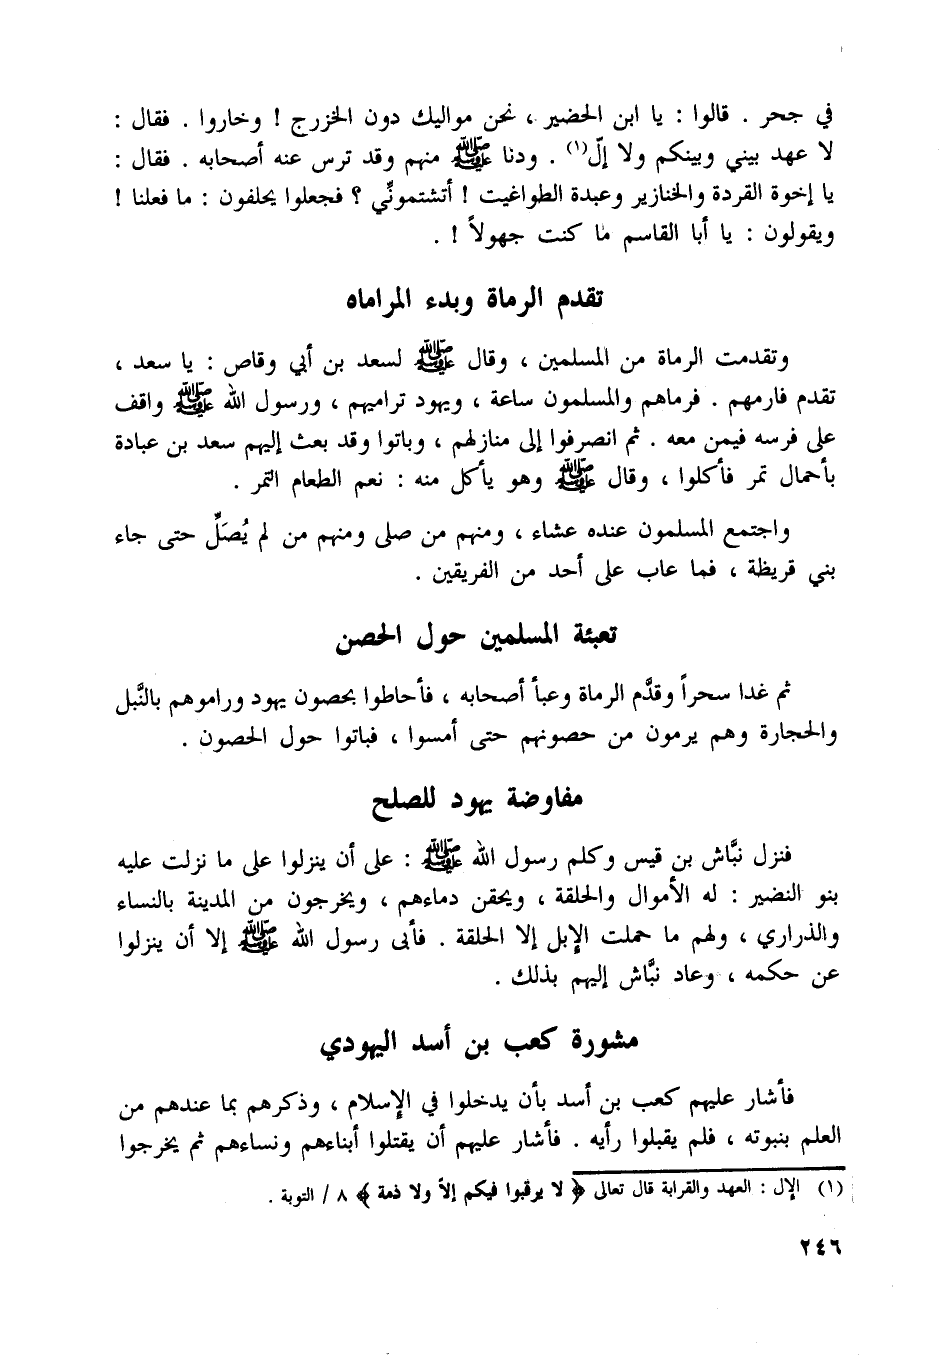 في جحر . قالوا : يا ابن الحضير ، نحن مواليك دون الخزرج ! وخاروا . فقال :
لا عهد بيني وبينكم ولا إلّ(١) . ودنا ﷺ منهم وقد ترس عنه أصحابه . فقال :
يا إخوة القردة والخنازير وعبدة الطواغيت ! أتشتمونِّي ؟ فجعلوا يحلفون : ما فعلنا !
ويقولون : يا أبا القاسم ما كنت جهولاً ! .
تقدم الرماة وبدء المراماه
وتقدمت الرماة من المسلمين ، وقال ﷺ لسعد بن أبي وقاص : يا سعد ،
تقدم فارمهم . فرماهم والمسلمون ساعة ، ويهود تراميهم ، ورسول الله ﷺ واقف
على فرسه فيمن معه . ثم انصرفوا إلى منازلهم ، وباتوا وقد بعث إليهم سعد بن عبادة
بأحمال تمر فأكلوا ، وقال ﷺ وهو يأكل منه : نعم الطعام التمر .
واجتمع المسلمون عنده عشاء ، ومنهم من صلى ومنهم من لم يُصَلِّ حتى جاء
بني قريظة ، فما عاب على أحد من الفريقين .
تعبئة المسلمين حول الحصن
ثم غدا سحراً وقدَّم الرماة وعبأ أصحابه ، فأحاطوا بحصون يهود وراموهم بالنَّبل
والحجارة وهم يرمون من حصونهم حتى أمسوا ، فباتوا حول الحصون .
مفاوضة يهود للصلح
فنزل نبَّاش بن قيس وكلم رسول الله ﷺ : على أن ينزلوا على ما نزلت عليه
بنو النضير : له الأموال والحلقة ، ويحقن دماءهم ، ويخرجون من المدينة بالنساء
والذراري ، ولهم ما حملت الإبل إلا الحلقة . فأبى رسول الله ﷺ إلا أن ينزلوا
عن حكمه ، وعاد نبَّاش إليهم بذلك .
مشورة كعب بن أسد اليهودي
فأشار عليهم كعب بن أسد بأن يدخلوا في الإسلام ، وذكرهم بما عندهم من
العلم بنبوته ، فلم يقبلوا رأيه . فأشار عليهم أن يقتلوا أبناءهم ونساءهم ثم يخرجوا
(١) الإل : العهد والقرابة قال تعالى ﴿ لا يرقبوا فيكم إلاً ولا ذمة ﴾ ٨ / التوبة .
٢٤٦